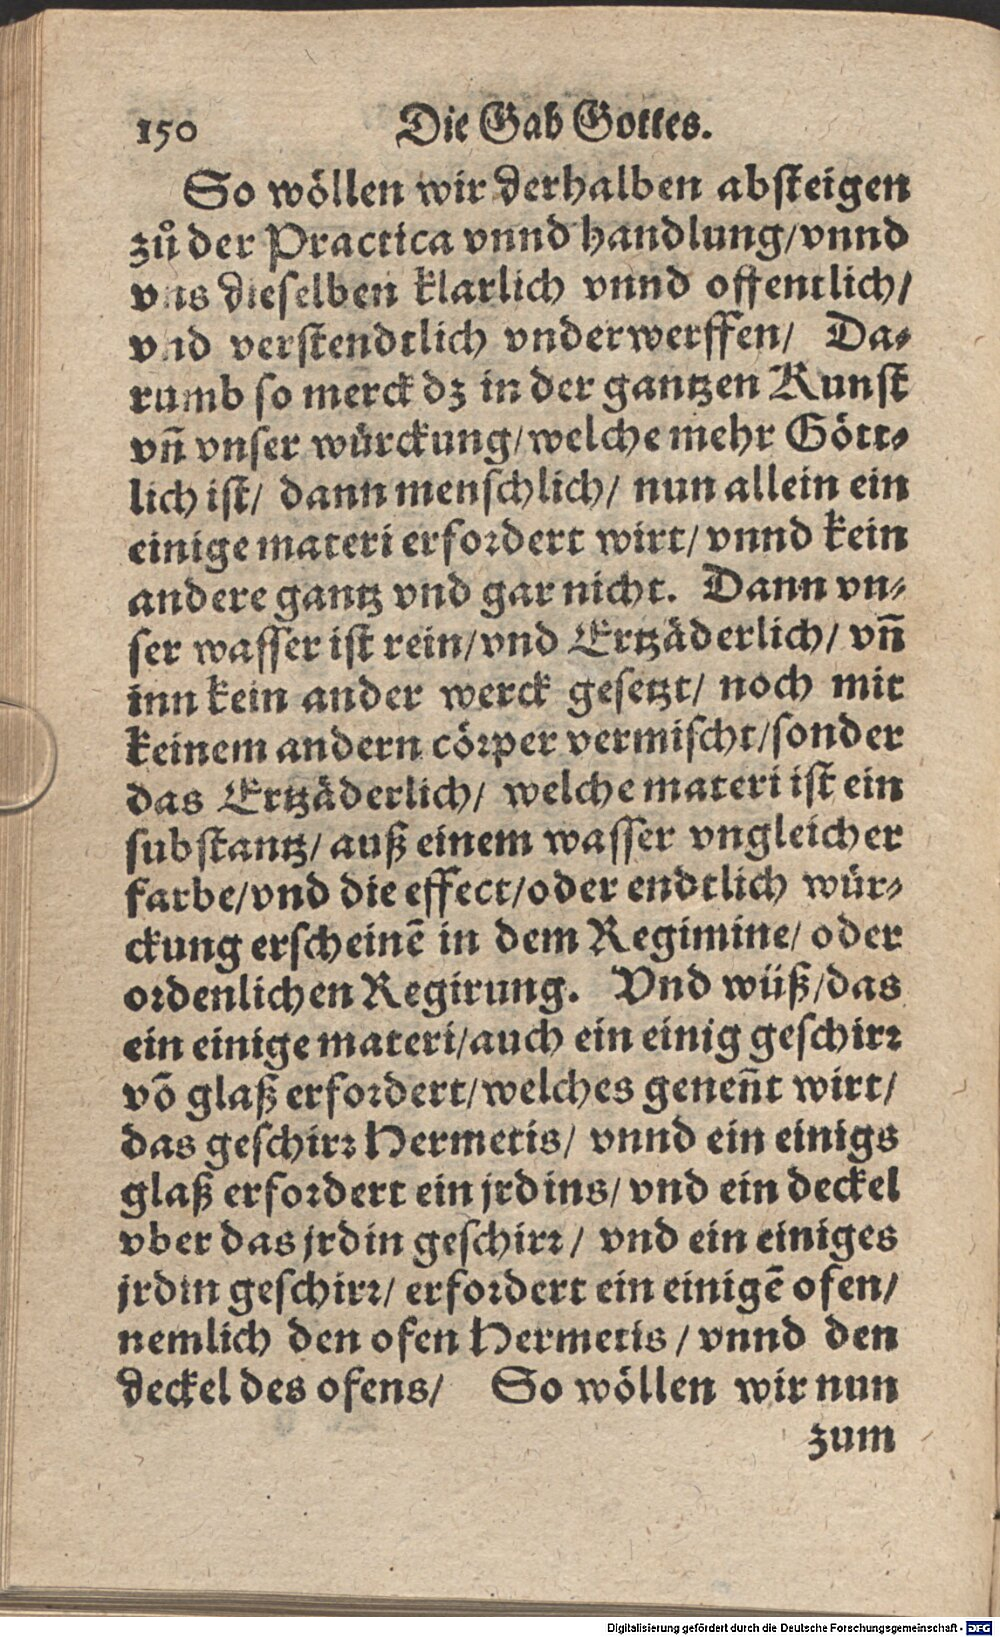 150 Die Gab Gottes.
So wöllen wir derhalben absteigen
zů der Practica vnnd handlung/vnnd
vns dieselben klarlich vnnd offentlich/
vnd verstendtlich vnderwerffen/ Da-
rumb so merck dz in der gantzen Kunst
vn̄ vnser würckung/welche mehr Gött-
lich ist/ dann menschlich/ nun allein ein
einige materi erfordert wirt/ vnnd kein
andere gantz vnd gar nicht. Dann vn-
ser wasser ist rein/vnd Ertzäderlich/ vn̄
inn kein ander werck gesetzt/ noch mit
keinem andern cörper vermischt/sonder
das Ertzäderlich/ welche materi ist ein
substantz/ auß einem wasser vngleicher
farbe/vnd die effect/oder endtlich wür-
ckung erscheinē in dem Regimine/ oder
ordenlichen Regirung. Vnd wüß/das
ein einige materi/auch ein einig geschirr
vō glaß erfordert/welches genen̄t wirt/
das geschirr Hermetis/ vnnd ein einigs
glaß erfordert ein jrdins/ vnd ein deckel
vber das jrdin geschirr/ vnd ein einiges
jrdin geschirr/ erfordert ein einigē ofen/
nemlich den ofen Hermetis/ vnnd den
deckel des ofens/ So wöllen wir nun
zum
Digitalisierung gefördert durch die Deutsche Forschungsgemeinschaft - DFG